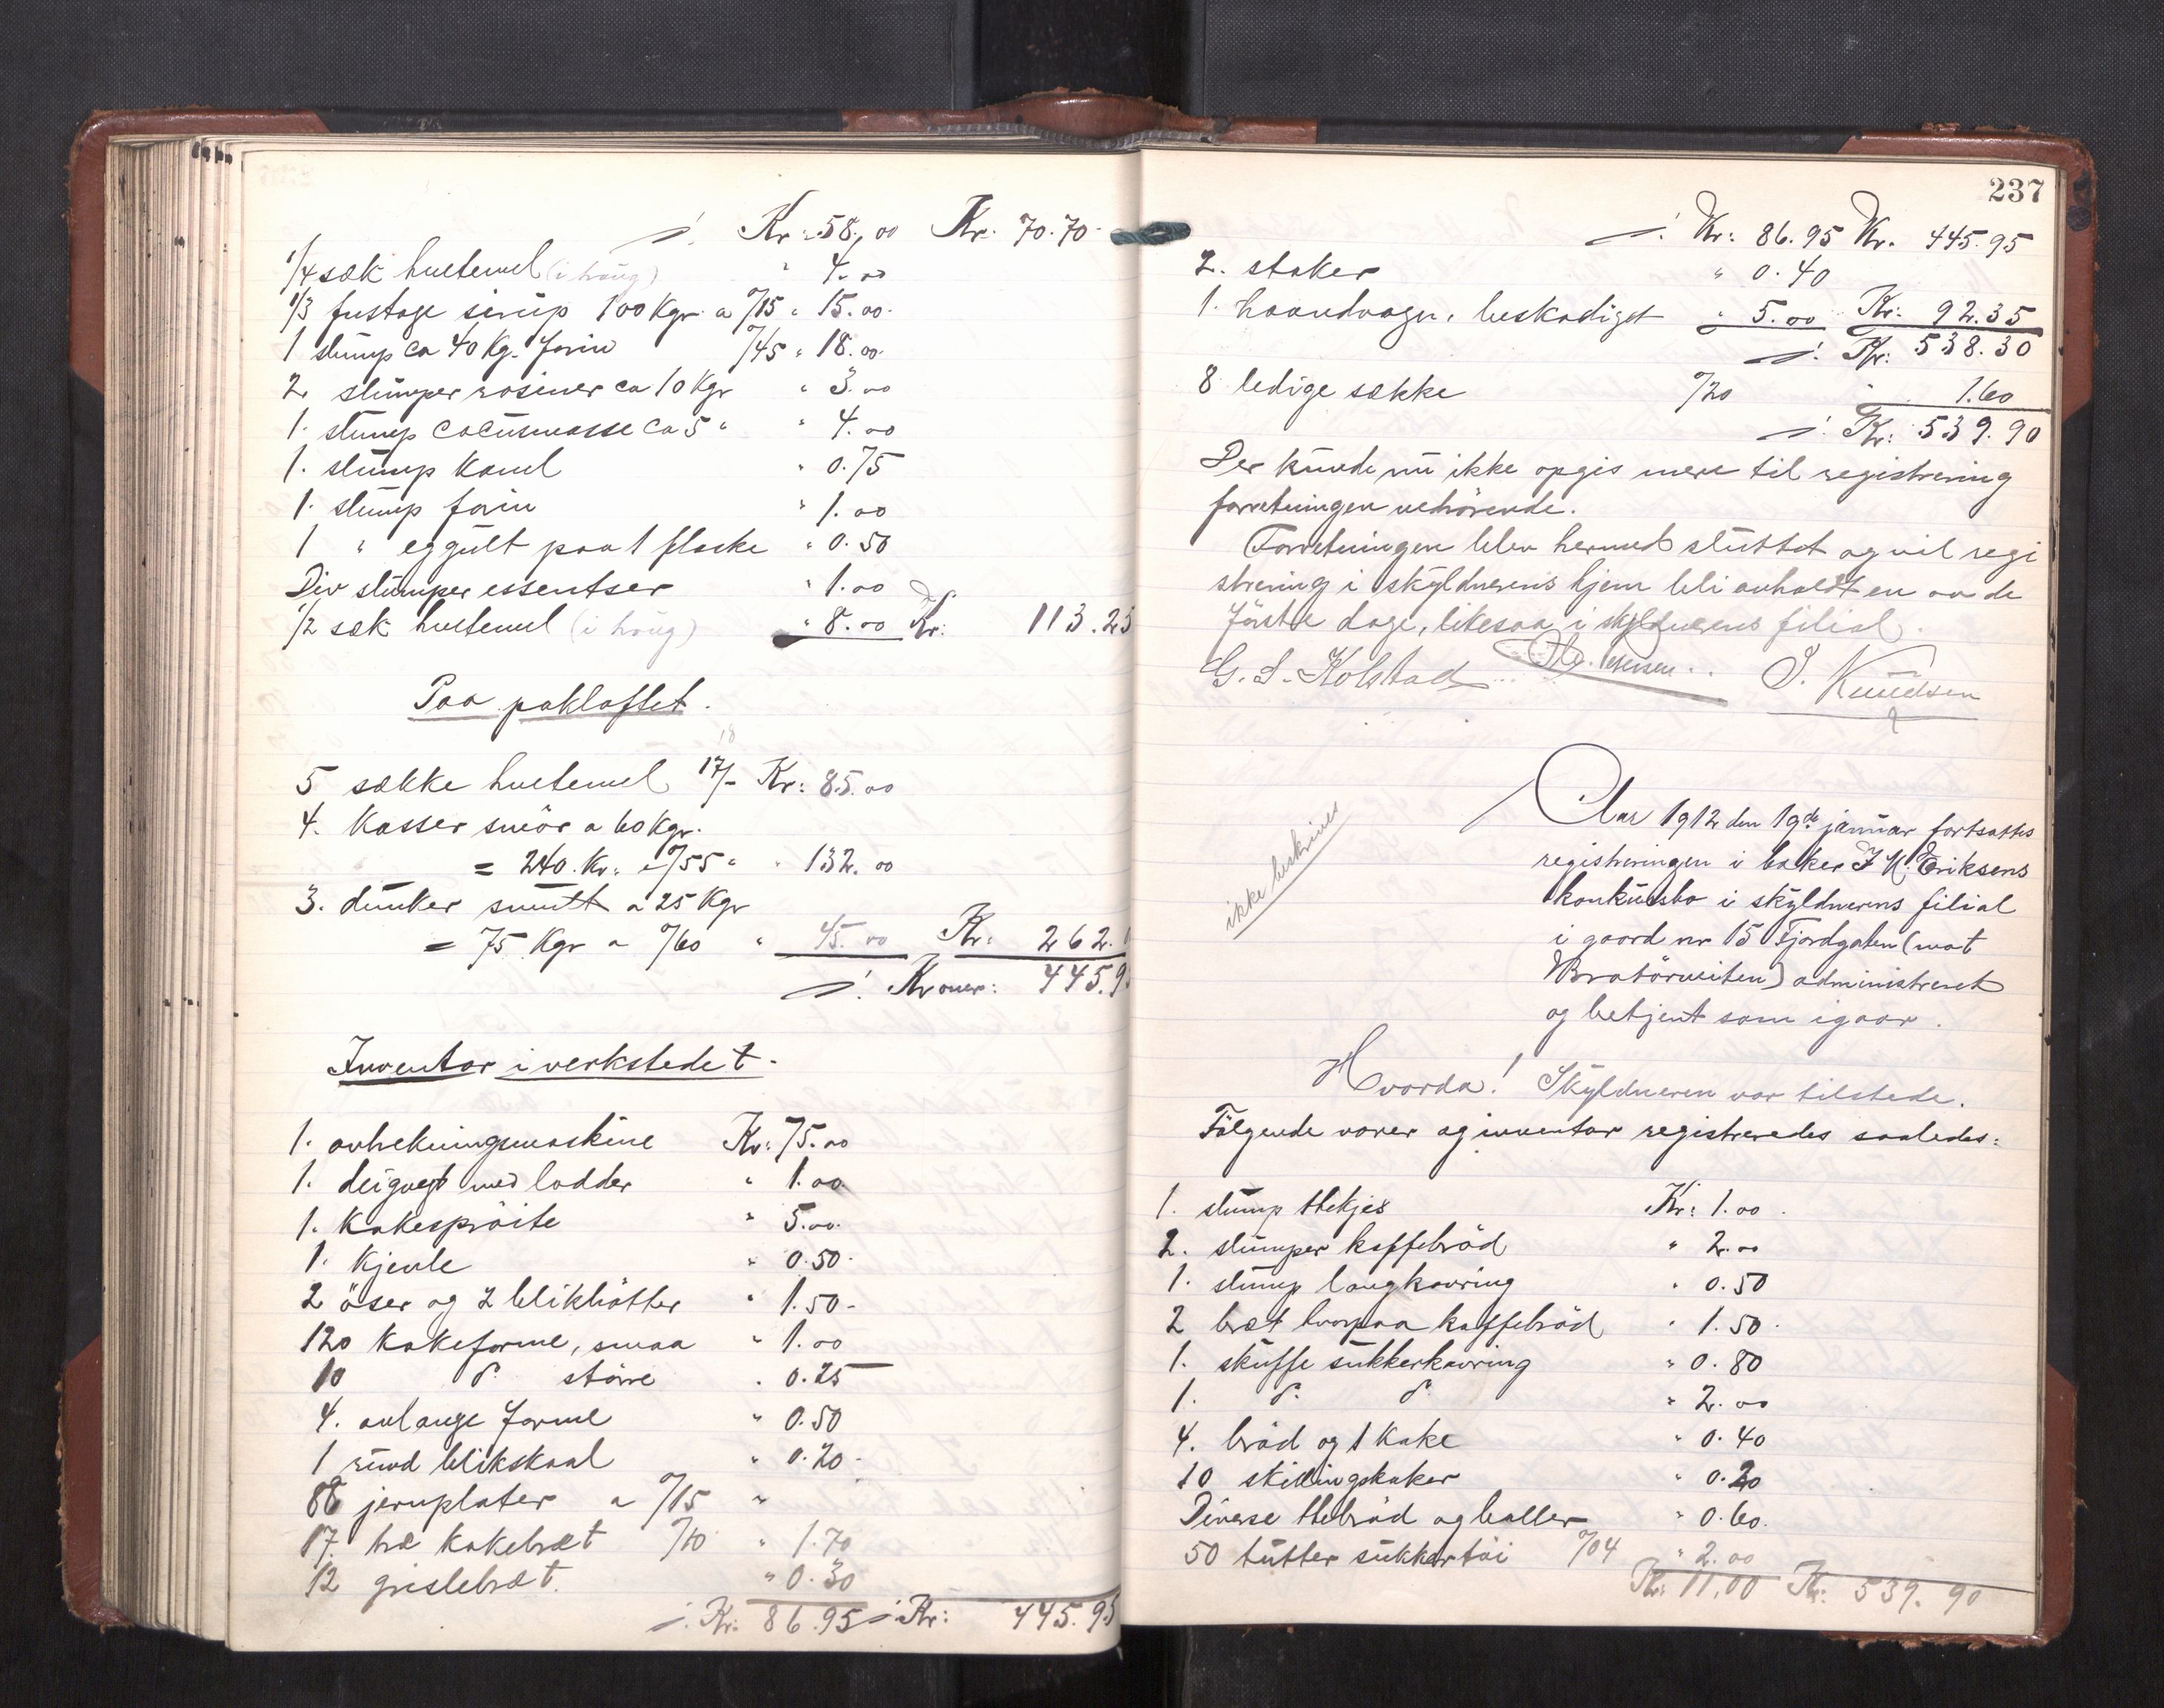 ./. Kr: 58,00 Kr: 70.70
1/4 sæk hvetemel (i haug) " 4.00
1/3 fustage sirup 100 Kgr a %15 " 15.00
1 slump ca 40 Kg. farin %45 " 18.00
2 slumper rosiner ca 10 Kgr " 3.00
1. slump cocusmasse ca 5 " " 4.00
1. slump kanel " 0.75
1. slump farin " 1.00
1 " eggult paa 1 flaske " 0.50
Div slumper essentser " 1.00
1/2 sæk hvetemel (i haug) " 8.00 Kr: 113.25
Paa pakloftet.
18
5 sække hvetemel 17/- Kr: 85.00
4. kasser smör a 60 Kgr.
= 240. Kr. a %55 " " 132.00
3. dunker smult a 25 Kgr
= 75 Kgr a %60 " 45.00 Kr: 262.
./. Kroner: 445.9
Inventar i verkstedet.
1. avtrekningsmaskine Kr: 75.00
1. deigvegt med lodder " 1.00
1. kakespröite " 5.00
1. kjevle " 0.50
2 öser og 2 blikbötter " 1.50
120 kakeforme, smaa " 1.00
10 do. större " 0.25
4. avlange forme " 0.50
1 rund blikskaal " 0.20
88 jernplater a %15 "
17. træ kakebræt %10 " 1.70
12 grislebræt. " 0.30
./. Kr: 86.95 ./. Kr: 445.95
237
./. Kr: 86.95 Kr. 445.95
2. staker " 0.40
1. haandvogn, beskadiget " 5.00 Kr: 92.35
./. Kr: 538.30
8 ledige sække %20 " 1.60
./. Kr: 539.90
Der kunde nu ikke opgis mere til registrering
forretningen vedrörende.
Forretningen blev hermed sluttet og vil regi
strering i skyldnerens hjem bli avholdt en av de
förste dage, likesaa i skyldnerens filial.
G. S. Kolstad J. Knudsen
ikke beskrives
Aar 1912 den 19de januar fortsattes
registreringen i baker J K. Eriksens
konkursbo i skyldnerens filial
i gaard nr 15 Fjordgaten (mot
Bratörveiten) administreret
og betjent som igaar.
Hvorda! Skyldneren var tilstede.
Fölgende varer og inventar registreredes saaledes:
1. slump thekjes Kr: 1.00
2. slumper kaffebröd " 2.00
1. slump langkavring " 0.50
2 bræt hvorpaa kaffebröd " 1.50
1. skuffe sukkerkavring " 0.80
1. do. do. " 2.00
4. bröd og 1 kake " 0.40
10 skillingskaker " 0.20
Diverse thebröd og boller " 0.60
50 tutter sukkertöi %04 " 2.00
Kr: 11,00 Kr: 539.90